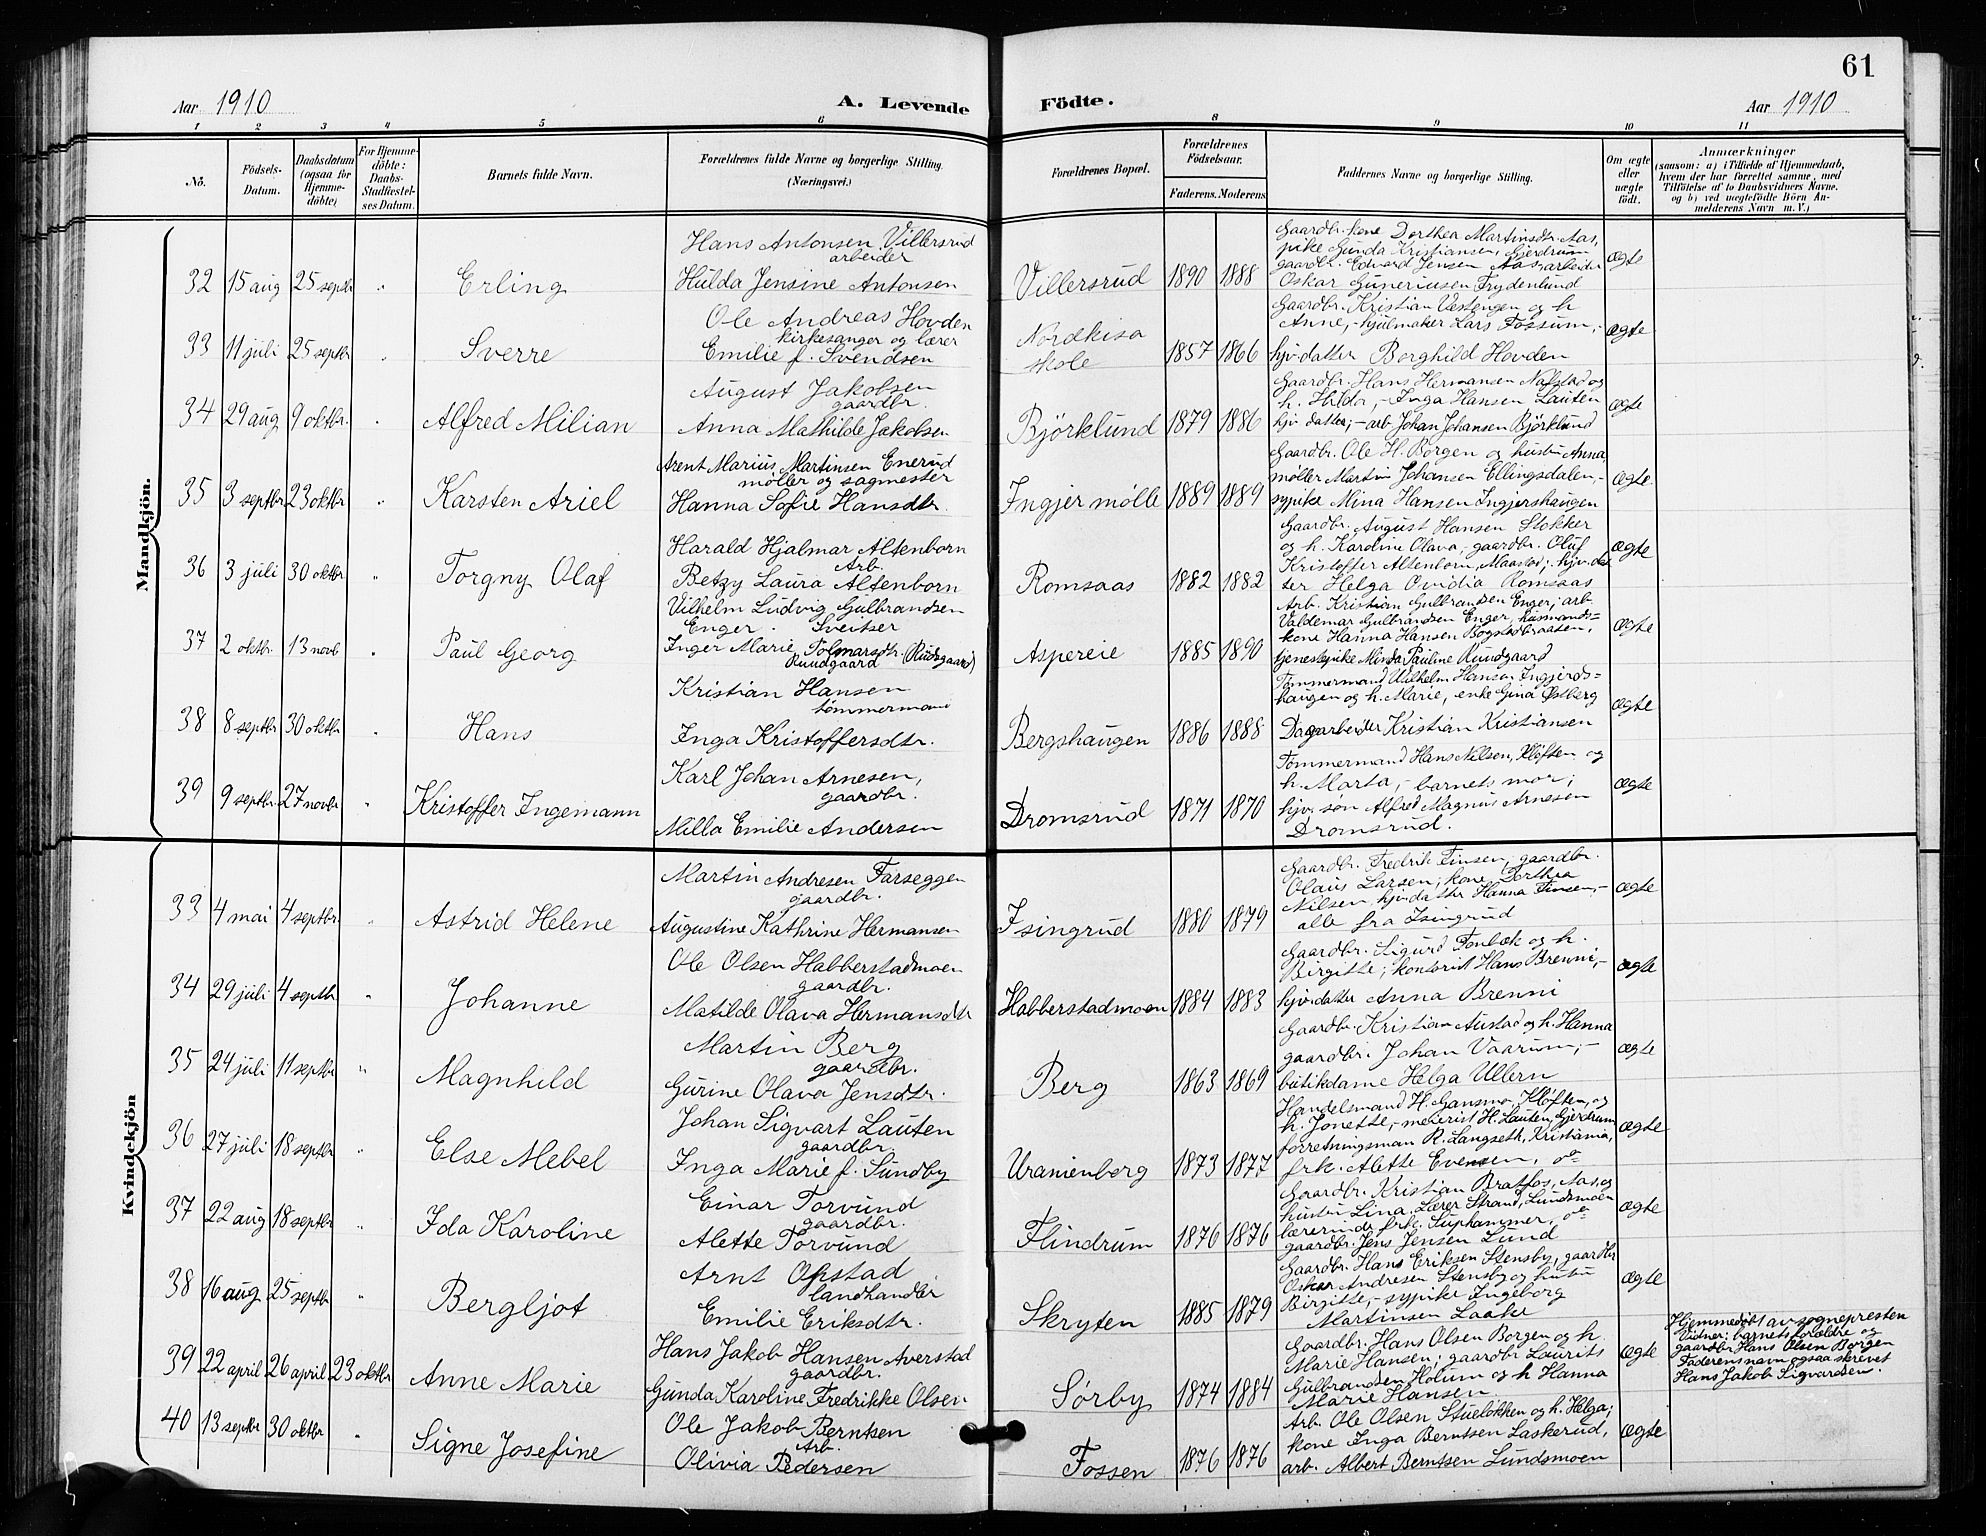 61
Aar 1910 A. Levende Födte. Aar 1910
1 2 3 4 5 6 8 9 10 11
No.
Födsels-
Datum.
Daabsdatum
(ogsaa for
Hjemme-
döbte)
For Hjemme-
döbte:
Daabs-
Stadfæstel-
ses Datum.
Barnets fulde Navn.
Forældrenes fulde Navne og borgerlige Stilling.
(Næringsvei.)
Forældrenes Bopæl.
Forældrenes
Födselsaar.
Faderens. Moderens
Faddernes Navne og borgerlige Stilling.
Om ægte
eller
uægte
födt.
Anmærkninger
(saasom: a) i Tilfælde af Hjemmedaab,
hvem der har forrettet samme, med
Tilföielse af to Daabsvidners Navne.
og b) ved uegtefödte Börn An-
melderens Navn m. V.)
Mandkjön.
32 15 aug 25 septbr " Erling
Hans Antonsen Villersrud
arbeider
Hulda Jensine Antonsen
Villersrud 1890 1888
Gaardbr. kone Dorthea Martinsdtr. Aas,
pike Gunda Kristiansen, Gjerdrum
gaardbr. Edvard Jensen Aas, arbeider
Oskar Guneriusen Frydenlund
ægte
33 11 juli 25 septbr " Sverre
Ole Andreas Hovden
kirkesanger og lærer
Emilie f. Svendsen
Nordkisa
skole 1857 1866
Gaardbr. Kristian Vestengen og h
Anne, - hjulmaker Lars Fossum, -
hjv. datter Borghild Hovden
ægte
34 29 aug 9 oktbr. " Alfred Milian
August Jakobsen
gaardbr.
Anna Mathilde Jakobsen
Björklund 1879 1886
Gaardbr. Hans Hermansen Nafstad og
h. Hilda, - Inga Hansen Lauten
hjv. datter, - arb. Johan Johansen Björklund
ægte
35 3 septbr 23 oktbr " Karsten Ariel
Arent Marius Martinsen Enerud
møller og sagmester
Hanna Sofie Hansdtr.
Ingjer mølle 1889 1889
Gaardbr. Ole H. Borgen og hustru Anna,
møller Martin Johansen Ellingsdalen, -
sypike Mina Hansen Ingjershaugen
ægte
36 3 juli 30 oktbr " Torgny Olaf
Harald Hjalmar Altenborn
Arb.
Betzy Laura Altenborn
Romsaas 1882 1882
Gaardbr. August Hansen Stokker
og h. Karoline Olava, gaardbr. Oluf
Kristoffer Altenborn, Maastad; hjv. dat
ter Helga Ovidia Romsaas
ægte
37 2 oktbr. 13 novb " Paul Georg
Vilhelm Ludvig Gulbrandsen
Enger. Sveitser
Inger Marie Tolmarsdtr. (Rudsgaard)
Ruudgaard
Aspereie 1885 1890
Arb. Kristian Gulbrandsen Enger; arb.
Valdemar Gulbrandsen Enger, husmands-
kone Hanna Hansen Bogstadbraaten,
tjenestepike Minda Pauline Rundgaard
ægte
38 8 septbr 30 oktbr " Hans
Kristian Hansen
tømmermand
Inga Kristoffersdtr.
Bergshaugen 1886 1888
Tømmermand Wilhelm Hansen Ingjerds-
haugen og h. Marie, enke Gina Østberg
Dagarbeider Kristian Kristiansen
ægte
39 9 septbr. 27 novbr " Kristoffer Ingemann
Karl Johan Arnesen,
gaardbr.
Milla Emilie Andersen
Dromsrud 1871 1870
Tømmermand Hans Nilsen, Kløften og
h. Marta, - barnets mor;
hjv. søn Alfred Magnus Arnesen
Dromsrud.
ægte
Kvindekjön
33 4 mai 4 septbr. " Astrid Helene
Martin Andresen Farseggen
gaardbr.
Augustine Kathrine Hermansen
Isingrud 1880 1879
Gaardbr. Fredrik Finsen, gaardbr.
Olaus Larsen; kone Dorthea
Nilsen, hjv. datter Hanna Finsen, -
alle fra Isingrud
ægte
34 29 juli 4 septbr. " Johanne
Ole Olsen Habberstadmoen
gaardbr.
Matilde Olava Hermansdtr
Habberstadmoen 1884 1883
Gaardbr. Sigurd Fonbæk og h.
Birgitte; kontorist Hans Brenni, -
hjv. datter Anna Brenni
ægte
35 24 juli 11 septbr " Magnhild
Martin Berg
gaardbr.
Gurine Olava Jensdtr.
Berg 1863 1869
Gaardbr. Kristian Austad og h. Hanna
gaardbr. Johan Vaarum, -
butikdame Helga Ullern
ægte
36 27 juli 18 septbr " Else Mebel
Johan Sigvart Lauten
gaardbr.
Inga Marie f. Sundby
Uranienborg 1873 1877
Handelsmand H. Gansmo, Kløften, og
h. Jonette, - meierist H. Lauten, Gjerdrum
forretningsman R. Langseth, Kristiania,
frk. Alette Evensen, o.a.
ægte
37 22 aug 18 septbr " Ida Karoline
Einar Torvund
gaardbr.
Alette Torvund
Flindrum 1876 1876
Gaardbr. Kristian Bratfos, Aas, og
hustru Lina. Lærer Strand, Lundsmoen
lærerinde frk. Suphammer, o.a.
gaardbr. Jens Jensen Lund
ægte
38 16 aug 25 septbr. " Bergljot
Arnt Opstad
landhandler
Emilie Eriksdtr.
Skryten 1885 1879
Gaardbr. Hans Eriksen Stensby, gaardbr
Oskar Andresen Stensby og hustru
Birgitte, - sypike Ingeborg
Martinsen Laake
ægte
39 22 april 26 april 23 oktbr Anne Marie
Hans Jakob Hansen Averstad
gaardbr.
Gunda Karoline Fredrikke Olsen
Sørby 1874 1884
Gaardbr. Hans Olsen Borgen og h.
Marie Hansen; gaardbr Laurits
Gulbrandsen Holum og h Hanna
Marie Hansen
ægte
Hjemmedøbt av sognepresten
Vidner: barnets forældre og
gaardbr Hans Olsen Borgen
Faderens navn ogsaa skrevet
Hans Jakob Sigvardsen.
40 13 septbr 30 oktbr " Signe Josefine
Ole Jakob Berntsen
Arb.
Olivia Pedersen
Fossen 1876 1876
Arb. Ole Olsen Stueløkken og h. Helga;
kone Inga Berntsen Laskerud,
arb. Albert Berntsen Lundsmoen
ægte